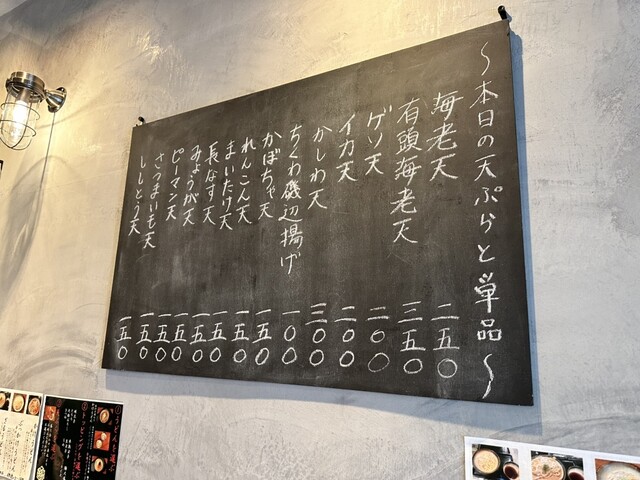 ～本日の天ぷらと単品～
海老天 二五〇
有頭海老天 三五〇
ゲソ天 二〇〇
イカ天 二〇〇
かしわ天 三〇〇
ちくわ磯辺揚げ 一〇〇
かぼちゃ天 一五〇
れんこん天 一五〇
まいたけ天 一五〇
長なす天 一五〇
みょうが天 一五〇
ピーマン天 一五〇
さつまいも天 一五〇
ししとう天 一五〇